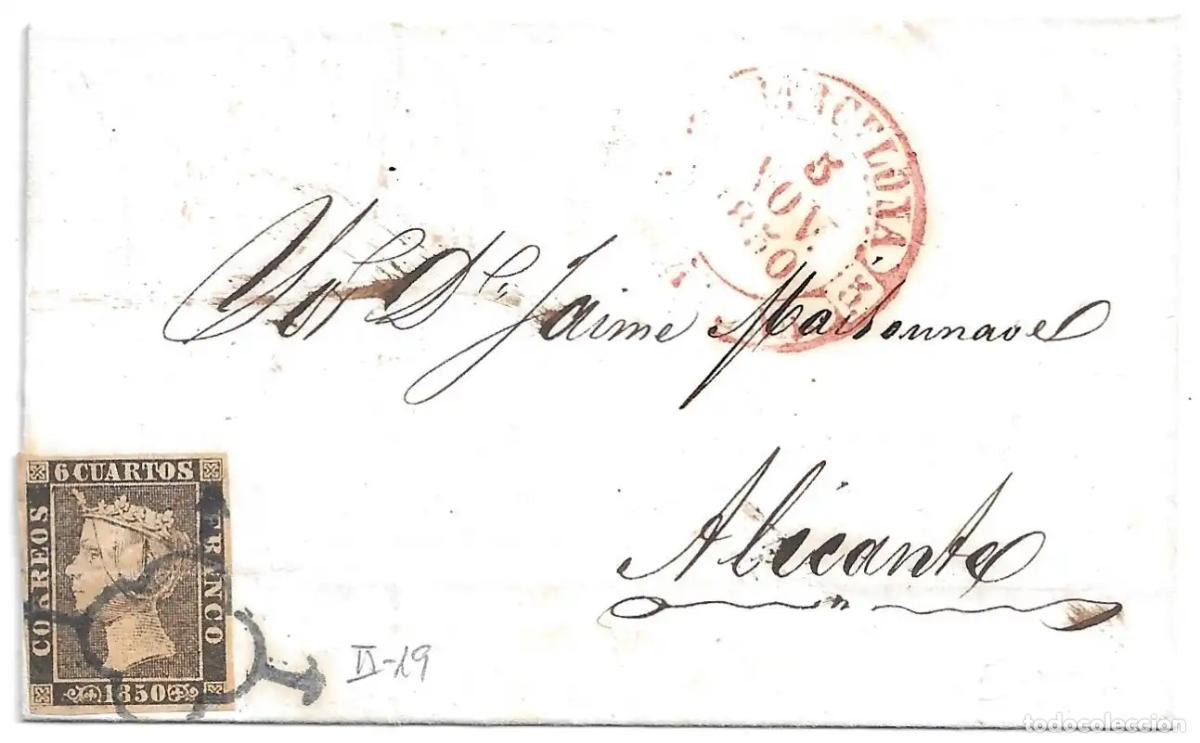 BARCELONA
3
NOV
1850
Sor. Dn. Jaime Maisonnave
Alicante
6 CUARTOS
CORREOS
FRANCO
1850
II-19
todocoleccion